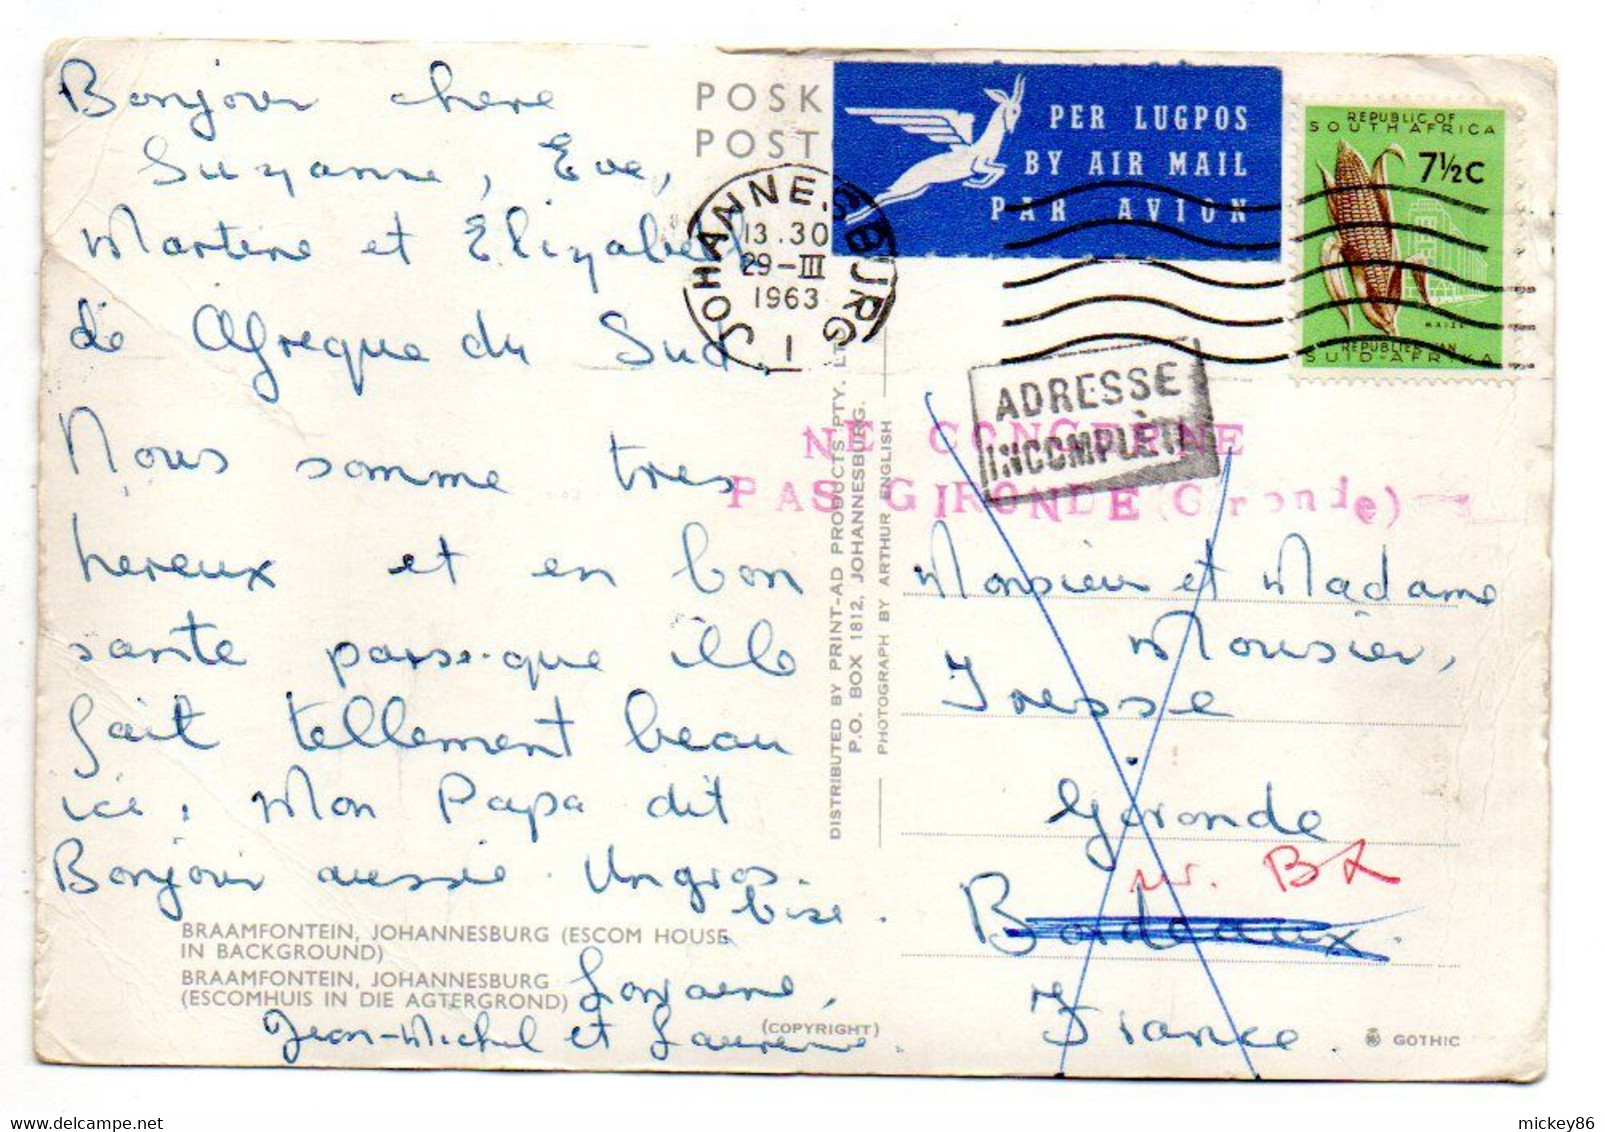 Bonjour chere
Suzanne, Eve,
Martine et Elizabeth
de Afreque du Sud.
Nous somme tres
hereux et en bon
sante parse-que ill
fait tellement beau
ici. Mon Papa dit
Bonjour aussie. Un gros.
bise.
Jean-Michel et
BRAAMFONTEIN, JOHANNESBURG (ESCOM HOUSE
IN BACKGROUND)
BRAAMFONTEIN, JOHANNESBURG
(ESCOMHUIS IN DIE AGTERGROND)
(COPYRIGHT)
POSK
POST
JOHANNESBURG
13.30
29-III
1963
1
PER LUGPOS
BY AIR MAIL
PAR AVION
REPUBLIC OF
SOUTH AFRICA
7½C
MAIZE
REPUBLIEK VAN
SUID-AFRIKA
ADRESSE
INCOMPLÈTE
NE CONCERNE
PAS GIRONDE (Gironde)
DISTRIBUTED BY PRINT-AD PRODUCTS PTY. LT
P.O. BOX 1812, JOHANNESBURG.
PHOTOGRAPH BY ARTHUR ENGLISH
Monsieur et Madame
Mousier,
Yresse
Gironde
BX
Bordeaux.
France.
GOTHIC
mickey86